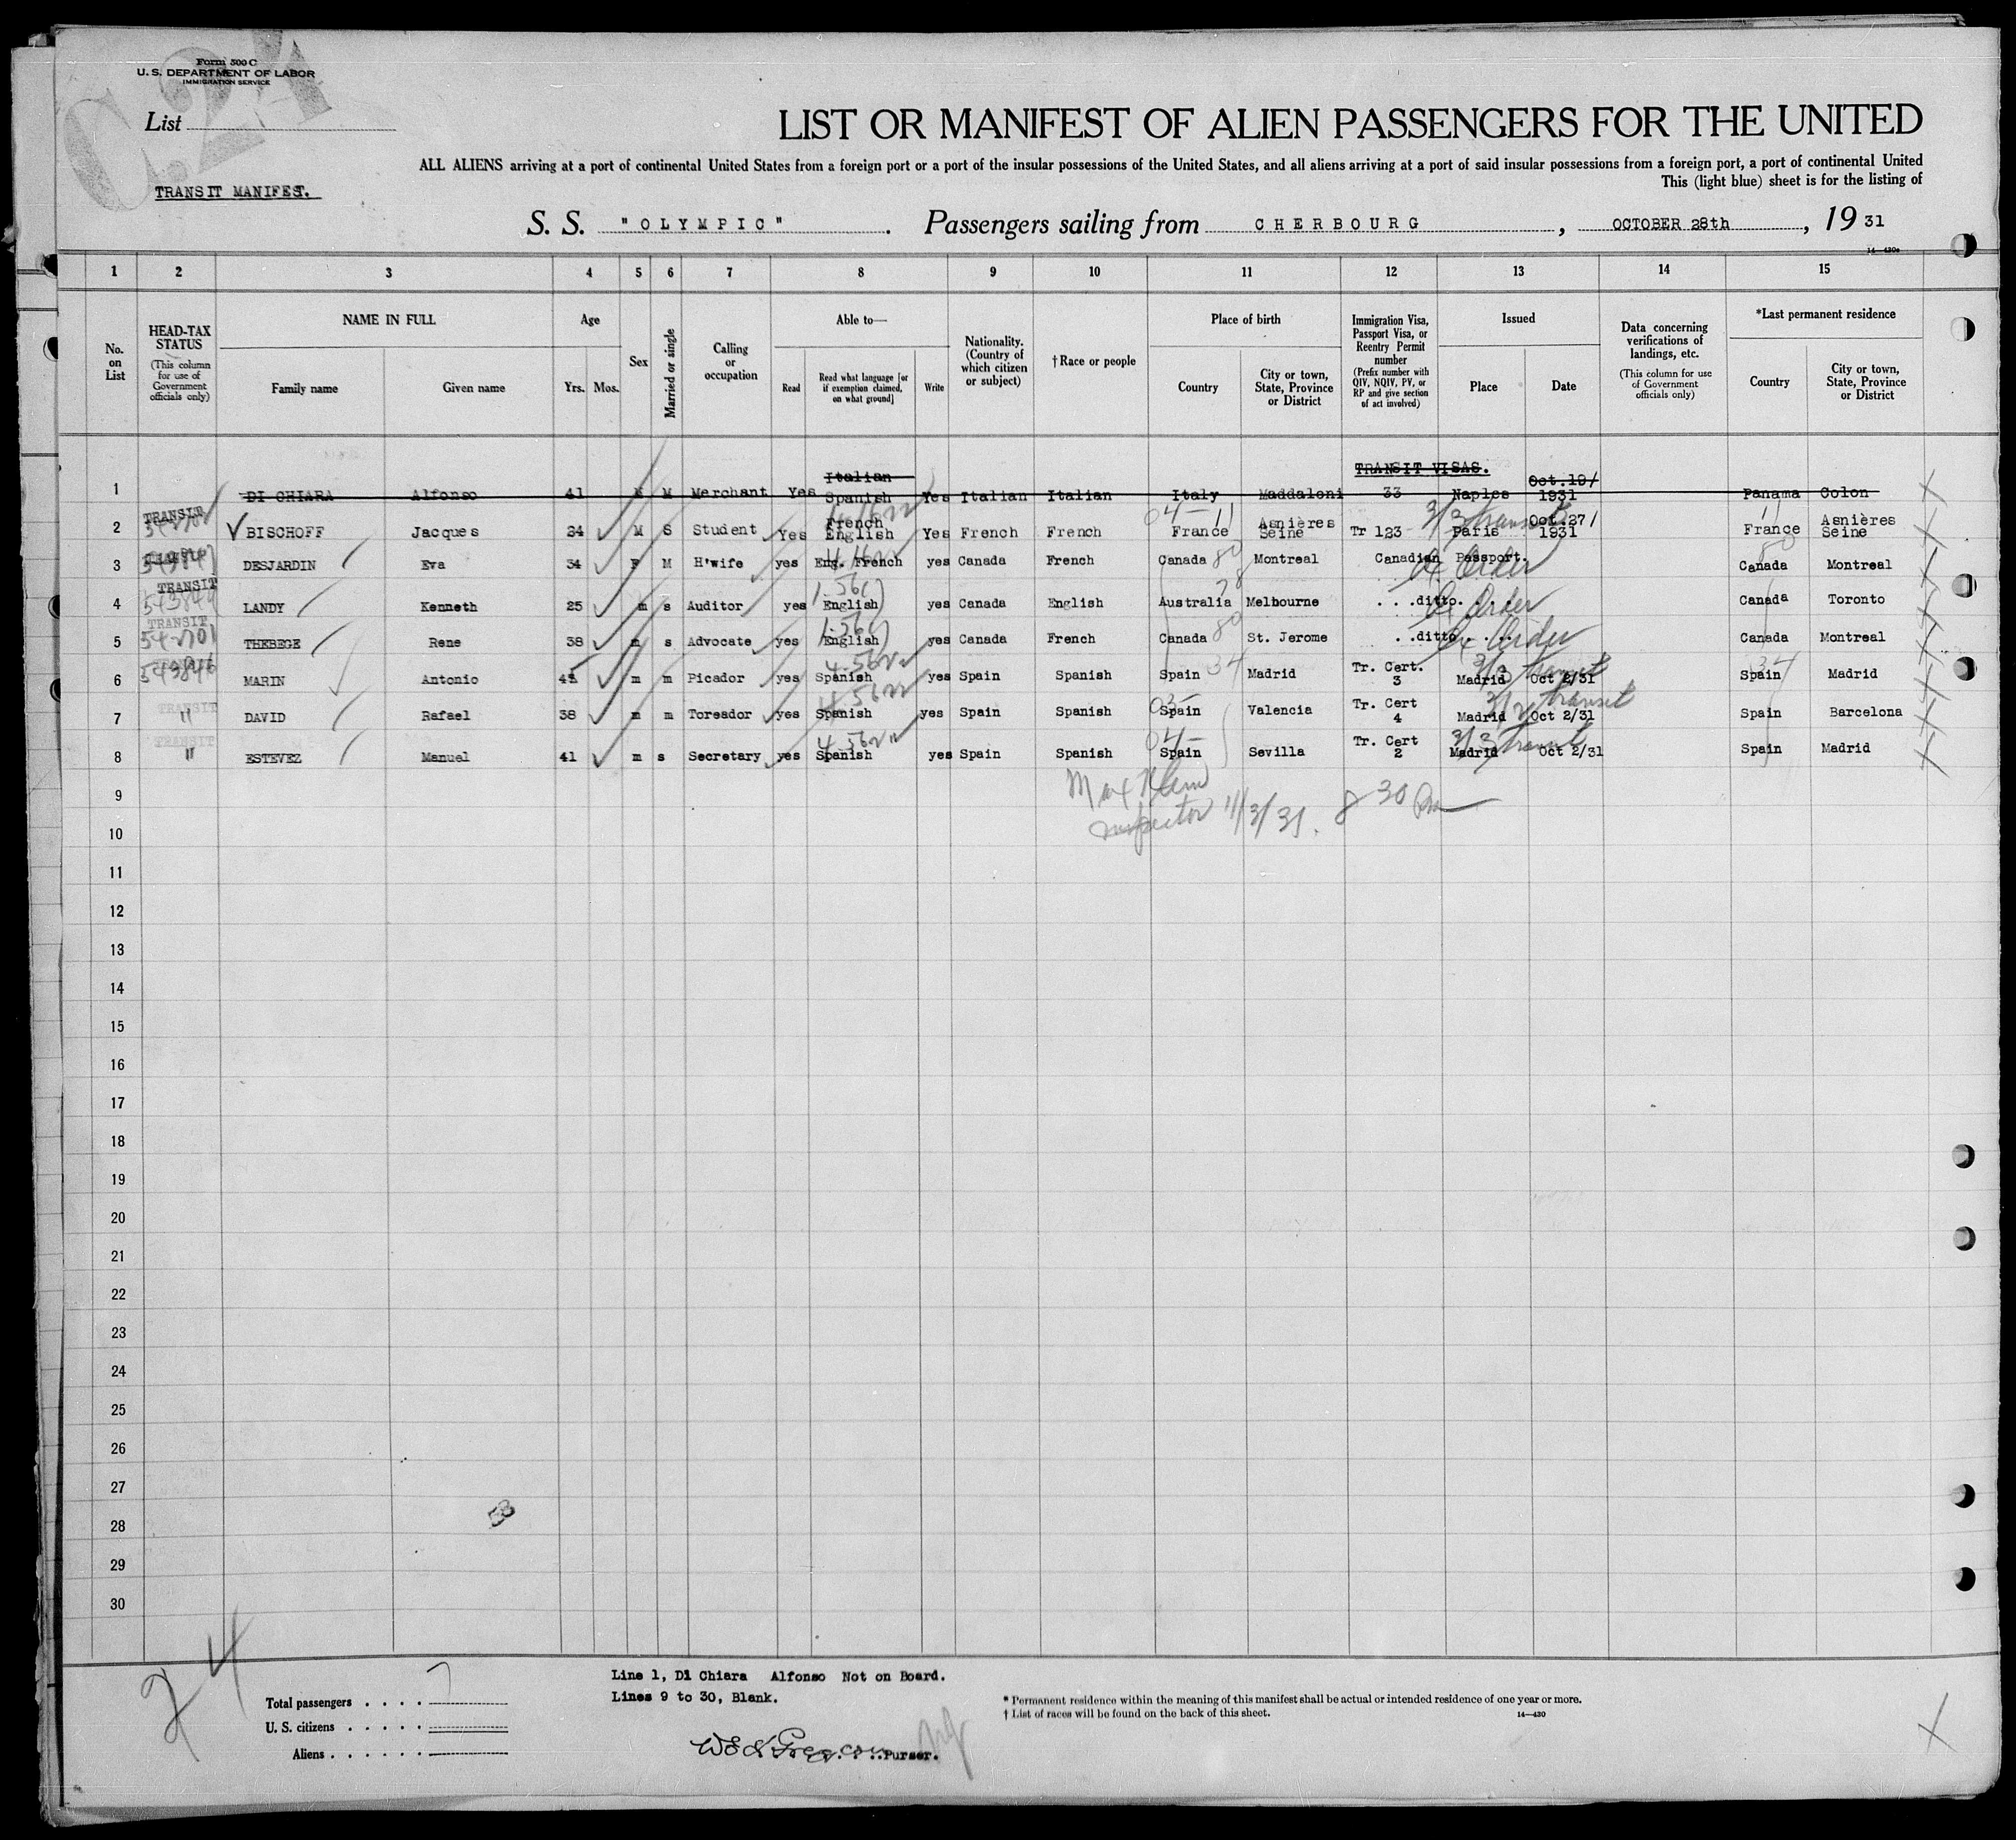 C.24
Form 500 C
U. S. DEPARTMENT OF LABOR
IMMIGRATION SERVICE
List
LIST OR MANIFEST OF ALIEN PASSENGERS FOR THE UNITED
ALL ALIENS arriving at a port of continental United States from a foreign port or a port of the insular possessions of the United States, and all aliens arriving at a port of said insular possessions from a foreign port, a port of continental United
This (light blue) sheet is for the listing of
TRANSIT MANIFEST.
S. S. "OLYMPIC". Passengers sailing from CHERBOURG, OCTOBER 28th, 19 31
1 2 3 4 5 6 7 8 9 10 11 12 13 14 15
No. on List
HEAD-TAX STATUS
(This column for use of Government officials only)
NAME IN FULL
Family name Given name
Age
Yrs. Mos.
Sex
Married or single
Calling or occupation
Able to—
Read
Read what language [or if exemption claimed, on what ground]
Write
Nationality. (Country of which citizen or subject)
†Race or people
Place of birth
Country
City or town, State, Province or District
Immigration Visa, Passport Visa, or Reentry Permit number
(Prefix number with QIV, NQIV, PV, or RP and give section of act involved)
Issued
Place Date
Data concerning verifications of landings, etc.
(This column for use of Government officials only)
*Last permanent residence
Country
City or town, State, Province or District
TRANSIT VISAS.
1 DI CHIARA Alfonso 41 M Merchant Yes Italian Spanish Yes Italian Italian Italy Maddaloni 33 Naples Oct.19/ 1931 Panama Colon
2 TRANSIT BISCHOFF Jacques 24 M S Student Yes French English Yes French French France Asnières Seine Tr 123 Paris Oct.27/ 1931 France Asnières Seine
3 543847 DESJARDIN Eva 34 F M H'wife yes Eng. French yes Canada French Canada Montreal Canadian Passport. Canada Montreal
4 TRANSIT LANDY Kenneth 25 m s Auditor yes English yes Canada English Australia Melbourne . . .ditto. . . Canada Toronto
5 TRANSIT THEBEGE Rene 38 m s Advocate yes English yes Canada French Canada St. Jerome . .ditto. . . Canada Montreal
6 543846 MARIN Antonio m m Picador yes Spanish yes Spain Spanish Spain Madrid Tr. Cert. 3 Madrid Oct 2/31 Spain Madrid
7 TRANSIT " DAVID Rafael 38 m m Toreador yes Spanish yes Spain Spanish Spain Valencia Tr. Cert 4 Madrid Oct 2/31 Spain Barcelona
8 TRANSIT " ESTEVEZ Manuel 41 m s Secretary yes Spanish yes Spain Spanish Spain Sevilla Tr. Cert 2 Madrid Oct 2/31 Spain Madrid
9
inspector 11/3/31. 8 30 Pm
10
11
12
13
14
15
16
17
18
19
20
21
22
23
24
25
26
27
28
29
30
24
Total passengers . . . . 7
U. S. citizens . . . . .
Aliens . . . . . .
Line 1, Di Chiara Alfonso Not on Board.
Lines 9 to 30, Blank.
Purser.
* Permanent residence within the meaning of this manifest shall be actual or intended residence of one year or more.
† List of races will be found on the back of this sheet.
14—430